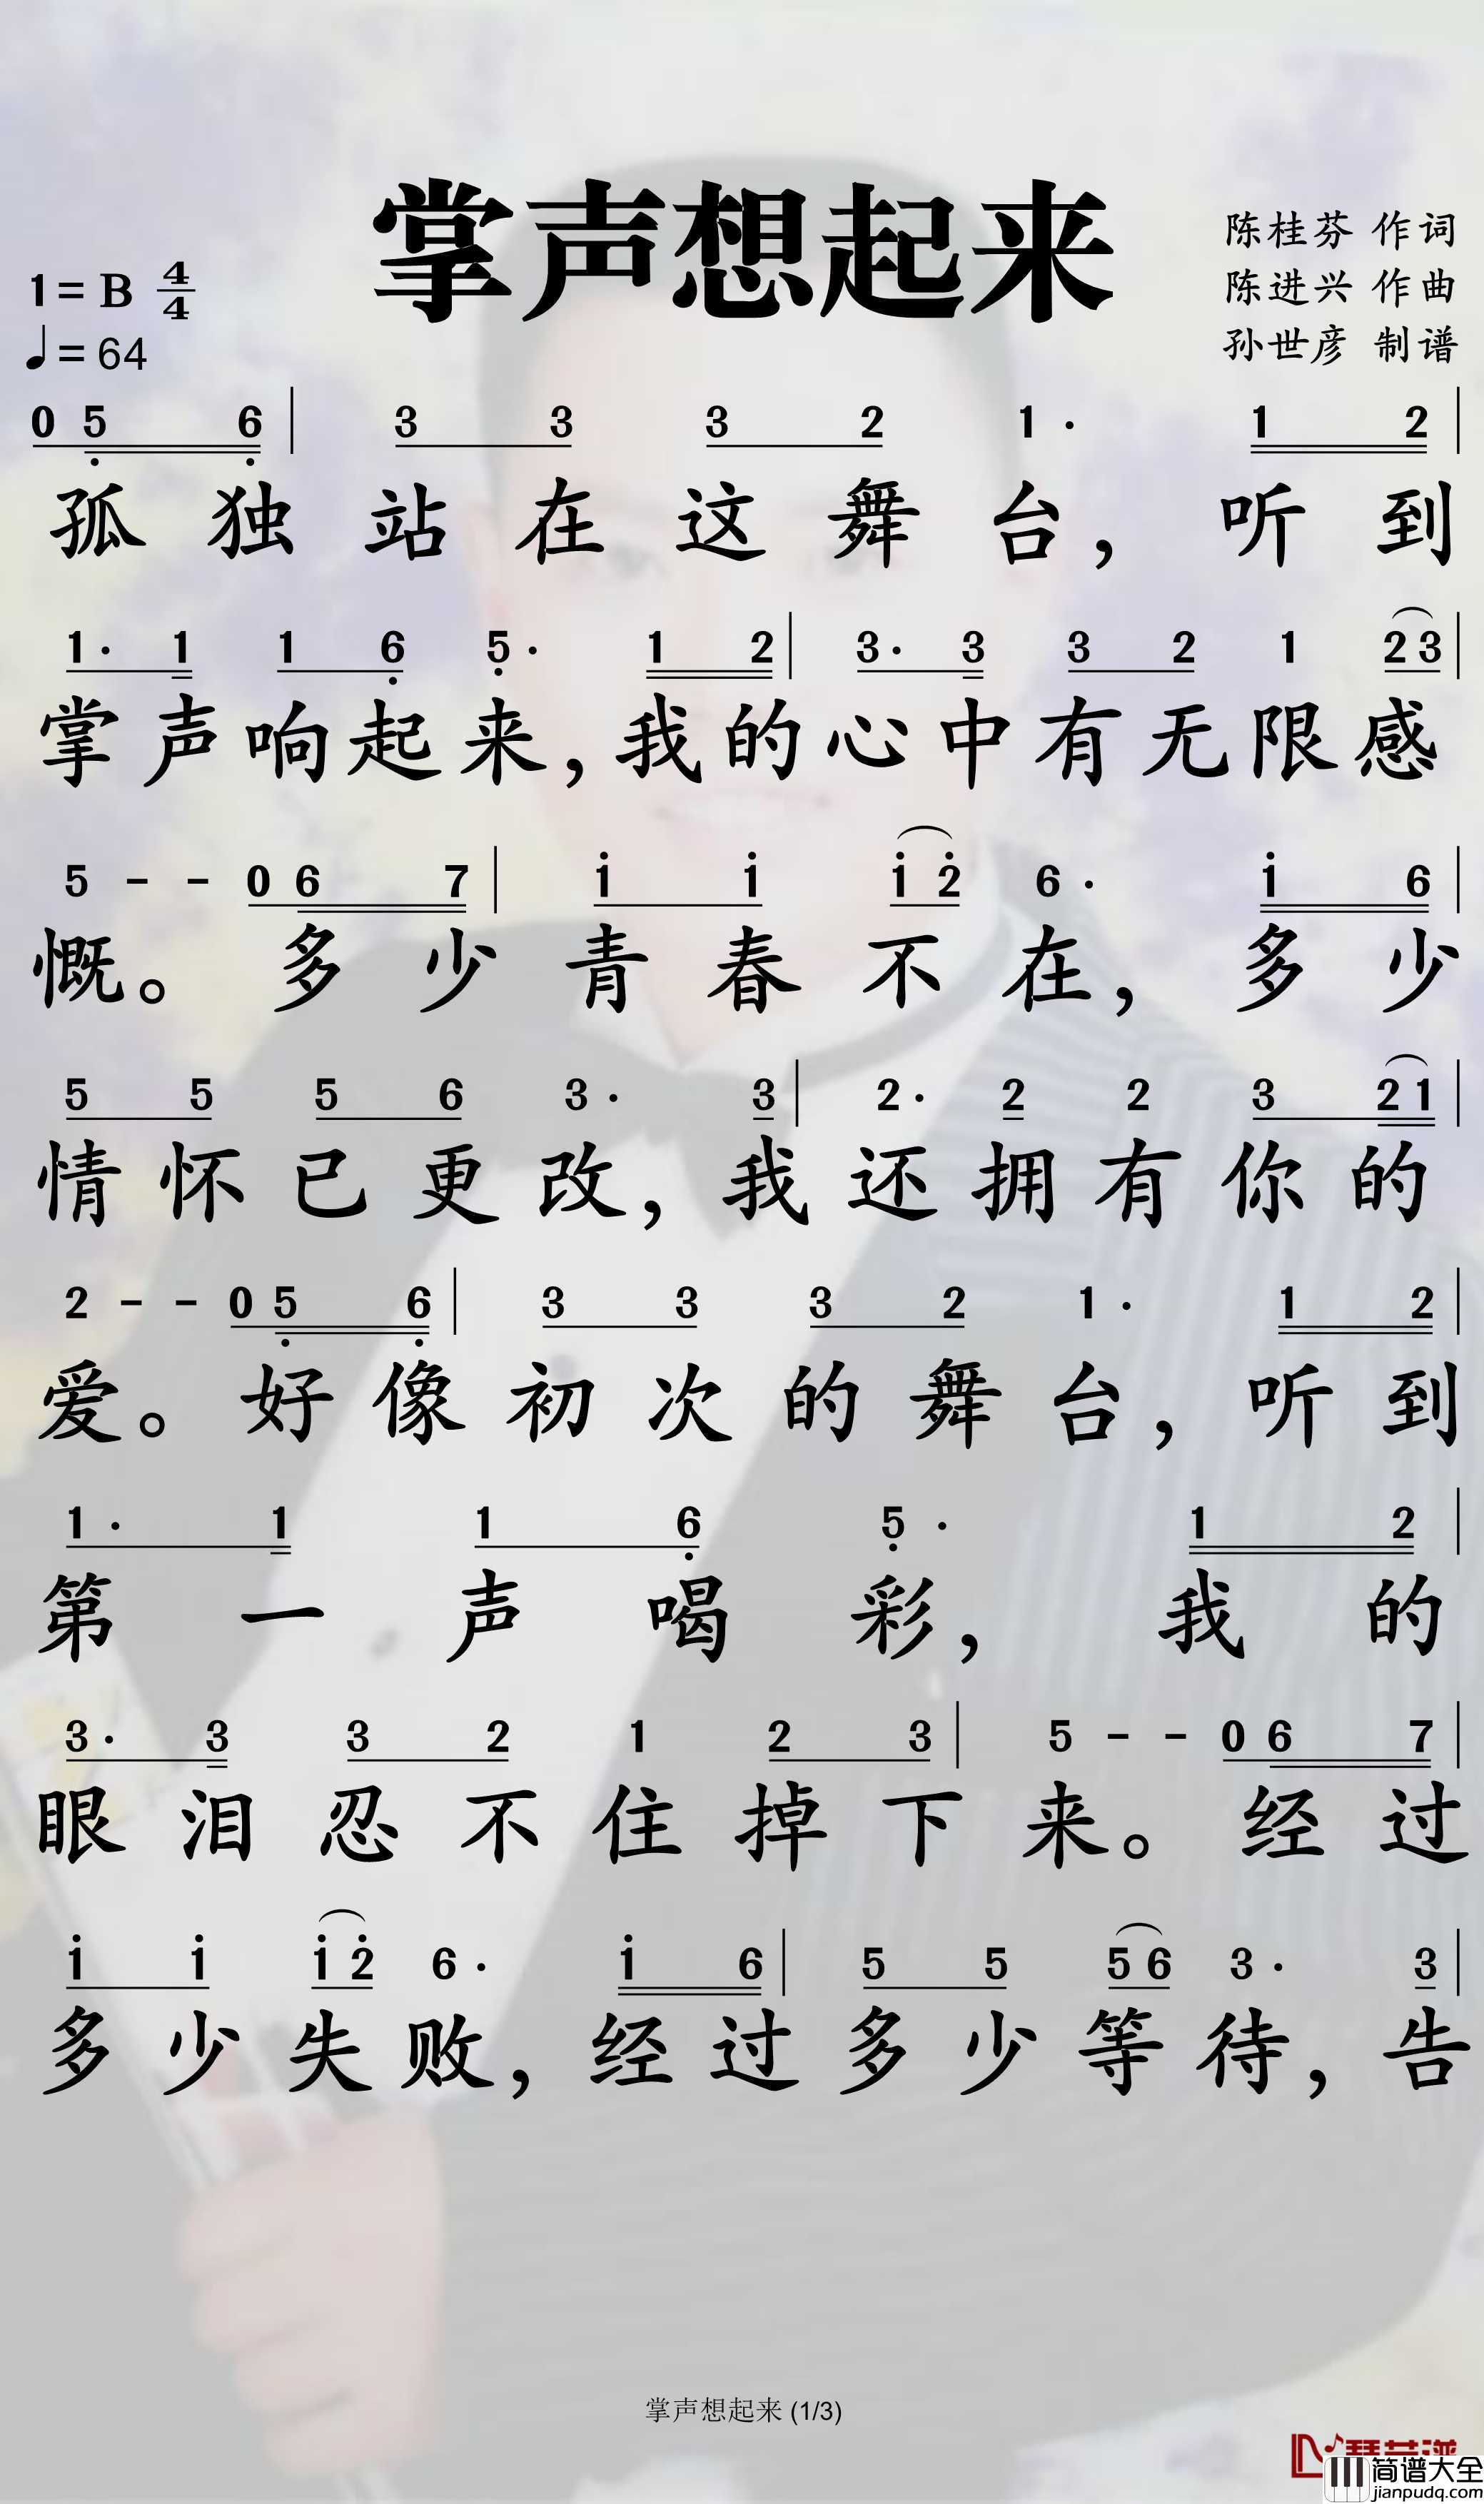 掌声想起来
陈桂芬 作词
陈进兴 作曲
孙世彦 制谱
1= B 4/4
♩= 64
0 5̣ 6̣ | 3 3 3 2 1 · 1 2 |
孤独站在这舞台，听到
1 · 1 1 6̣ 5̣ · 1 2 | 3 · 3 3 2 1 2 3 |
掌声响起来，我的心中有无限感
5 - - 0 6 7 | 1̇ 1̇ 1̇ 2̇ 6 · 1̇ 6 |
慨。多少青春不在，多少
5 5 5 6 3 · 3 | 2 · 2 2 3 2 1 |
情怀已更改，我还拥有你的
2 - - 0 5̣ 6̣ | 3 3 3 2 1 · 1 2 |
爱。好像初次的舞台，听到
1 · 1 1 6̣ 5̣ · 1 2 |
第一声喝彩，我的
3 · 3 3 2 1 2 3 | 5 - - 0 6 7 |
眼泪忍不住掉下来。经过
1̇ 1̇ 1̇ 2̇ 6 · 1̇ 6 | 5 5 5 6 3 · 3 |
多少失败，经过多少等待，告
掌声想起来 (1/3)
简谱大全
jianpudq.com